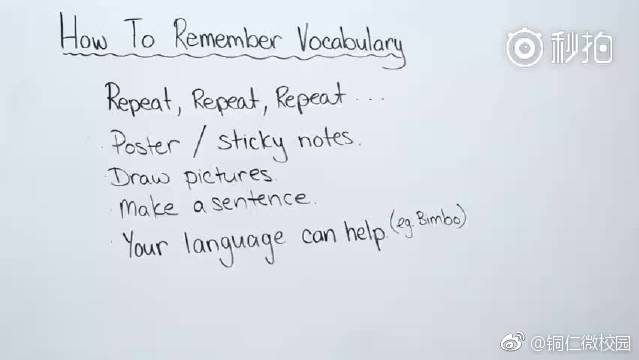 How To Remember Vocabulary
秒拍
Repeat, Repeat, Repeat ...
Poster / sticky notes.
Draw pictures.
Make a sentence.
Your language can help. (eg. Bimbo)
@铜仁微校园